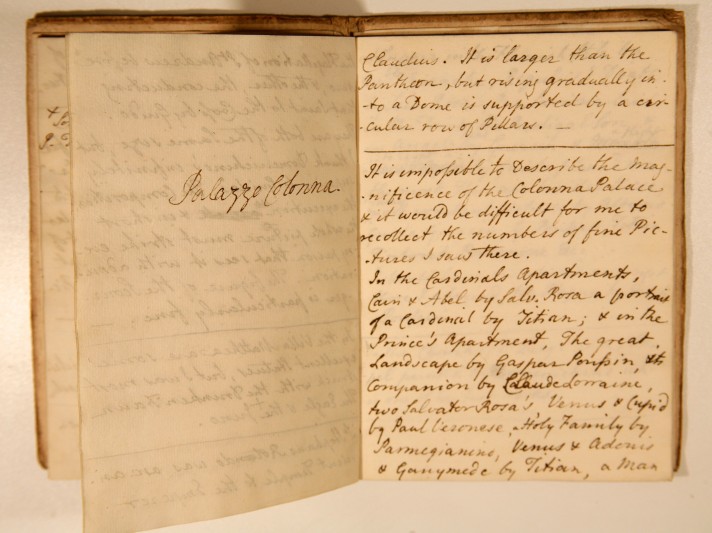 Palazzo Colonna.
Claudius. It is larger than the
Pantheon, but rising gradually in-
-to a Dome is supported by a cir-
-cular row of Pillars. —
It is impossible to Describe the Mag-
-nificence of the Colonna Palace
& it would be difficult for me to
recollect the numbers of fine Pic-
-tures I saw there.
In the Cardinals Apartments,
Cain & Abel by Salv. Rosa a portrait
of a Cardinal by Titian; & in the
Prince's Apartment, The great
Landscape by Gaspar Poussin, & its
Companion by Claude Lorraine,
two Salvator Rosa's, Venus & Cupid
by Paul Veronese, Holy Family by
Parmegianino, Venus & Adonis
& Ganymede by Titian, a Man